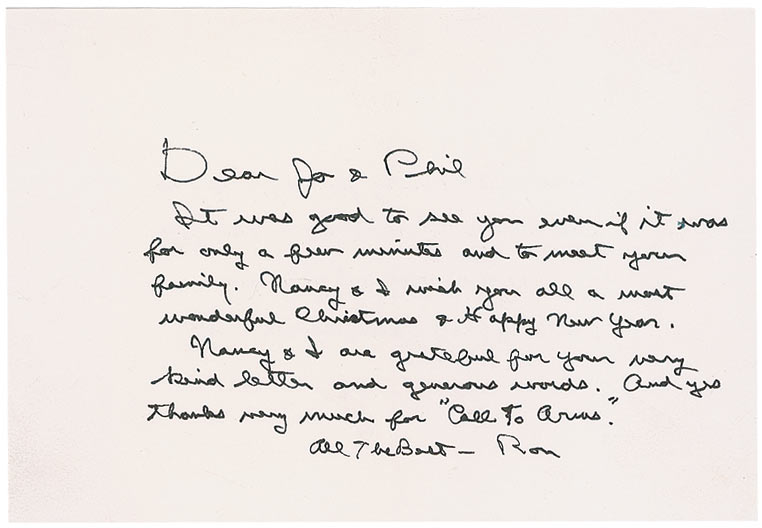 Dear Jo & Phil
It was good to see you even if it was
for only a few minutes and to meet your
family. Nancy & I wish you all a most
wonderful Christmas & Happy New Year.
Nancy & I are grateful for your very
kind letter and generous words. And yes
thanks very much for "Call To Arms."
All The Best – Ron